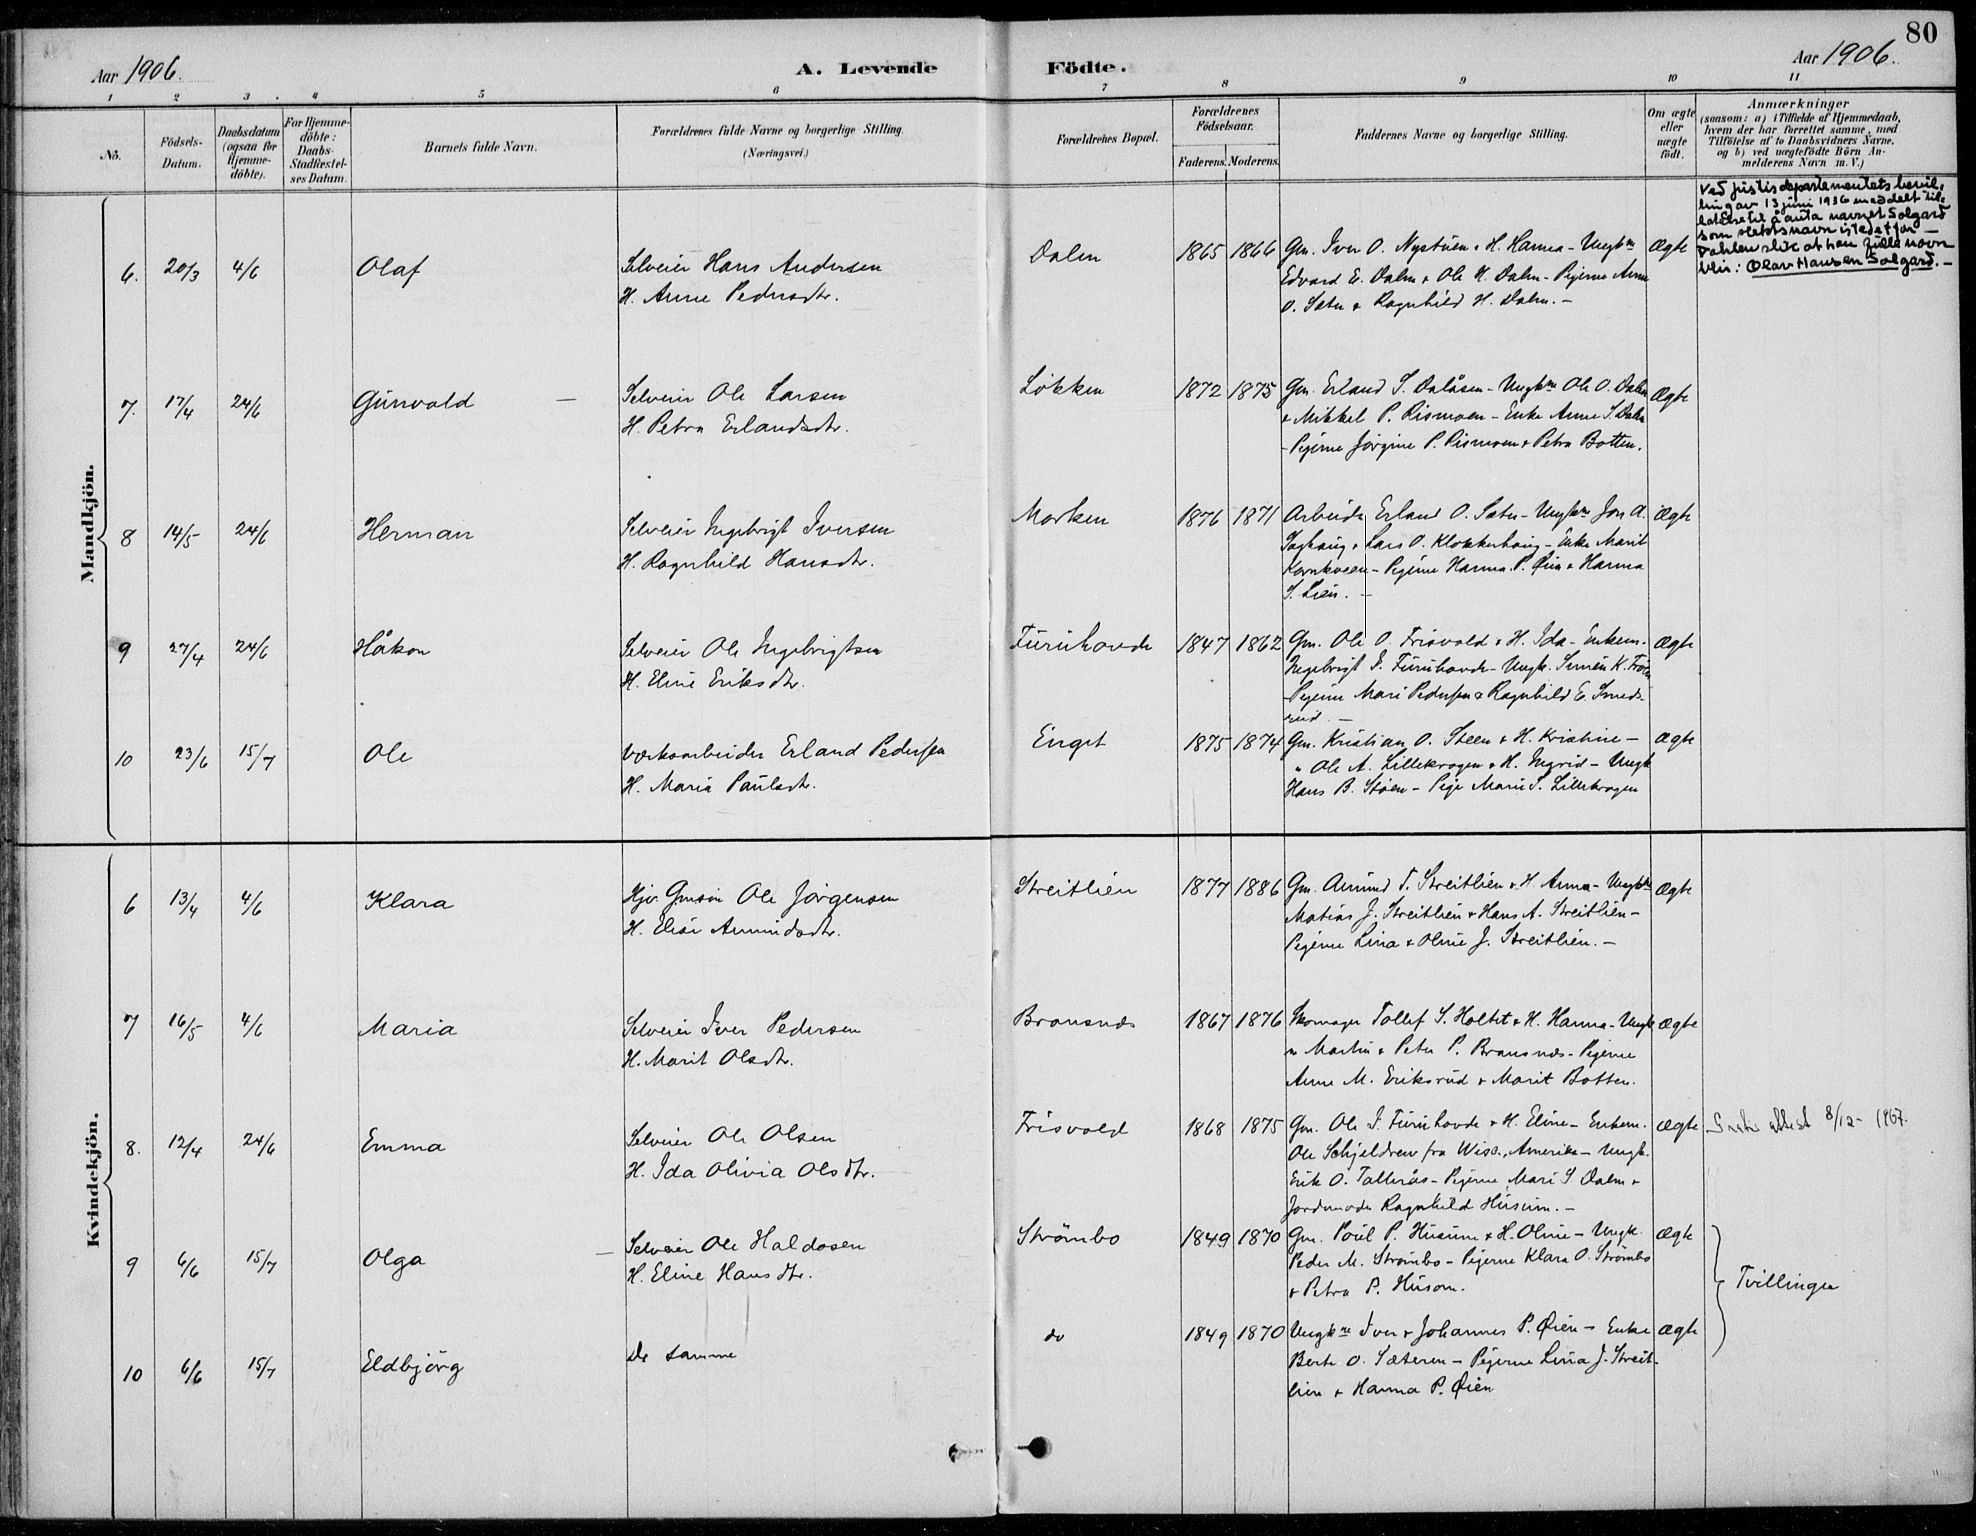 80
Aar 1906.
A. Levende Födte.
Aar 1906.
1 2 3 4 5 6 7 8 9 10 11
Nó.
Födsels-
Datum.
Daabsdatum
(ogsaa for
Hjemme-
döbte).
For Hjemme-
döbte:
Daabs-
Stadfæstel-
ses Datum.
Barnets fulde Navn.
Forældrenes fulde Navne og borgerlige Stilling.
(Næringsvei.)
Forældrenes Bopæl.
Forældrenes
Födselsaar.
Faderens. Moderens.
Faddernes Navne og borgerlige Stilling.
Om ægte
eller
uægte
födt.
Anmærkninger
(saasom: a) i Tilfælde af Hjemmedaab,
hvem der har forrettet samme, med
Tilföielse af to Daabsvidners Navne,
og b) ved uægtefödte Börn An-
melderens Navn m. V.)
Mandkjön.
6. 20/3 4/6 Olaf
Selveier Hans Andersen
H. Anne Pedersdtr.
Dalen 1865 1866
Gm. Iver O. Nystuen & H. Hanna - Ungkm
Edvard E. Dalen & Ole H. Dalen - Pigerne Anne
O. Sæter & Ragnhild H. Dalen. -
Ægte
Ved justisdepartementets bevil-
ling av 13 juni 1936 meddelt til-
latelse til å anta navnet Solgard
som slektsnavn istedetfor -
Dahlen slik at han fulle navn
blir: Olav Hansen Solgard. -
7. 17/4 24/6 Gunvald -
Selveier Ole Larsen
H. Petra Erlandsdtr.
Lökken 1872 1875
Gm. Erland S. Dalåsen - Ungkm Ole O. Dalen
& Mikkel P. Rismoen - Enke Anne S. Dalen
- Pigerne Jörgine P. Rismoen & Petra Botten.
Ægte
8 14/5 24/6 Herman
Selveier Ingebrigt Iversen
H. Ragnhild Hansdtr.
Morken 1876 1871
Arbeider Erland O. Sæter - Ungkm Jon A.
Haghaug & Lars O. Klokkerhaug - Enke Marit
Kornkveen - Pigerne Hanna P. Øien & Hanna
S. Lien. -
Ægte
9 27/4 24/6 Håkon
Selveier Ole Ingebrigtsen
H. Eline Eriksdtr.
Furuhovde 1847 1862
Gm. Ole O. Frisvold & H. Ida - Enkem.
Ingebrigt I. Furuhovde - Ungk. Simen K. Troen
- Pigerne Mari Pedersen & Ragnhild E. Smeds-
rud. -
Ægte
10 23/6 15/7 Ole
Værksarbeider Erland Pedersen
H. Maria Paulsdtr.
Enget 1875 1874
Gm. Kristian O. Steen & H. Kristine -
" Ole A. Lillekrogen & H. Ingrid - Ungk
Hans B. Stöen - Pige Marie S. Lillekrogen
Ægte
Kvindekjön.
6 13/4 4/6 Klara
Gmsön Ole Jörgensen
H. Elise Amundsdtr.
Streitlien 1877 1886
Gm. Amund T. Streitlien & H. Anna - Ungkm
Matias J. Streitlien & Hans A. Streitlien -
Pigerne Lina & Oline J. Streitlien. -
Ægte
7 16/5 4/6 Maria
Selveier Iver Pedersen
H. Marit Olsdtr.
Bransnes 1867 1876
Skomager Tollef S. Holtet & H. Hanna - Ungk
m Martin & Peter P. Bransnes - Pigerne
Anne M. Eriksrud & Marit Botten.
Ægte
8. 12/4 24/6 Emma
Selveier Ole Olsen
H. Ida Olivia Olsdtr.
Frisvold 1868 1875
Gm. Ole I. Furuhovde & H. Eline - Enkem.
Ole Schjeldren fra Wisc., Amerika - Ungk.
Erik O. Tallerås - Pigerne Mari S. Dalen &
Jordmoder Ragnhild Husum. -
Ægte
attest 8/12 - 1967.
9 6/6 15/7 Olga -
Selveier Ole Haldosen
H. Eline Hansdtr.
Strömbo 1849 1870
Gm. Poul P. Husum & H. Oline - Ungk.
Peder M. Strömbo - Pigerne Klara O. Strömbo
& Petra P. Husom.
Ægte
Tvillinger
10 6/6 15/7 Eldbjörg
De samme
do 1849 1870
Ungkm Iver & Johannes P. Øien - Enke
Berte O. Sæteren - Pigerne Lina J. Streit-
lien & Hanna P. Øien
Ægte